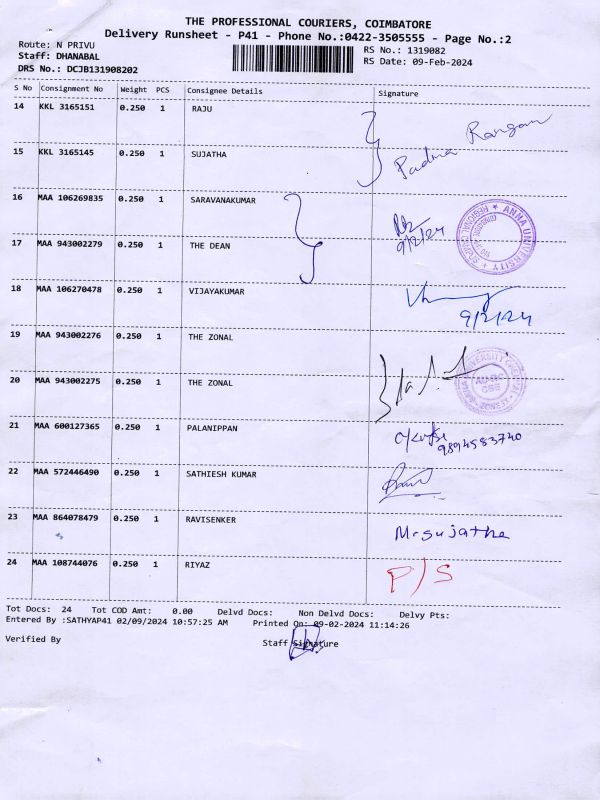 THE PROFESSIONAL COURIERS, COIMBATORE
Delivery Runsheet - P41 - Phone No.:0422-3505555 - Page No.:2
Route: N PRIVU
RS No.: 1319082
Staff: DHANABAL
RS Date: 09-Feb-2024
DRS No.: DCJB131908202
S No Consignment No Weight PCS Consignee Details Signature
14 KKL 3165151 0.250 1 RAJU
Padma Rangan
15 KKL 3165145 0.250 1 SUJATHA
16 MAA 106269835 0.250 1 SARAVANAKUMAR
9/2/24
ANNA UNIVERSITY
17 MAA 943002279 0.250 1 THE DEAN
18 MAA 106270478 0.250 1 VIJAYAKUMAR
9/2/24
19 MAA 943002276 0.250 1 THE ZONAL
20 MAA 943002275 0.250 1 THE ZONAL
21 MAA 600127365 0.250 1 PALANIPPAN
9894583740
22 MAA 572446490 0.250 1 SATHIESH KUMAR
23 MAA 864078479 0.250 1 RAVISENKER Mrsujatha
24 MAA 108744076 0.250 1 RIYAZ P/S
Tot Docs: 24 Tot COD Amt: 0.00 Delvd Docs: Non Delvd Docs: Delvy Pts:
Entered By :SATHYAP41 02/09/2024 10:57:25 AM Printed On: 09-02-2024 11:14:26
Verified By Staff Signature